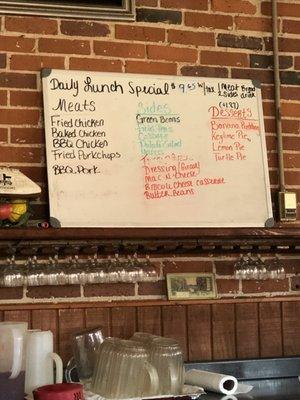 Daily Lunch Special $9.95 w/ 1 Meat Bread
2 Sides Drink
Meats
Fried Chicken
Baked Chicken
BBQ Chicken
Fried Porkchops
BBQ Pork
Sides
Green Beans
Cabbage
Potato Salad
Dressing (Bread)
Mac-N-Cheese
Broccoli Cheese Casserole
Butter Beans
Desserts
Banana Pudding
Keylime Pie
Lemon Pie
Turtle Pie